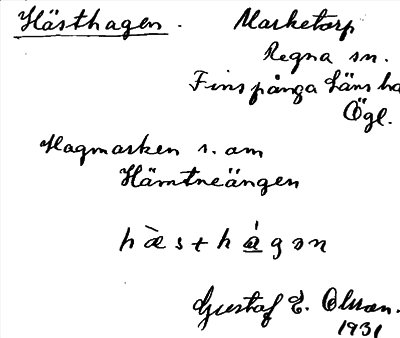 Hästhagen. Marketorp
Regna sn.
Finspånga läns hd
Ögl.
Hagmarken s. om
Hämtneängen
hæ̀sthágən
Gustaf E. Olsson.
1931